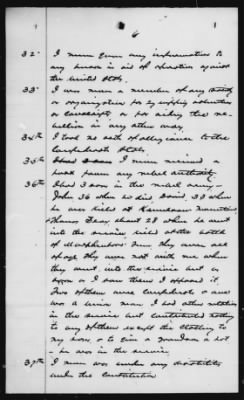 6
32" I never gave any information to
any person in aid of operations against
the United States.
33" I was never a member of any society
or organization for equipping volunteers
or conscripts, or for aiding the re-
bellion in any other way.
34th I took no oath of allegiance to the
Confederate States.
35th I never received a
pass from any rebel authority.
36th I had 3 sons in the rebel army -
John, 36 when he died David, 33 when
he was killed at Kennesaw mountain
Thomas, 28 when he went
into the service killed at the battle
of Murfreesboro Tenn. They were all
of age they were not with me when
they went into the service but
I opposed it.
Two of them were Confederate & one
was a Union man I had other relatives
in the service but contributed nothing
to any of them except the
to my sons, & to give a Grandson a
- he was in the service.
37th I never was under any disability
under the Constitution